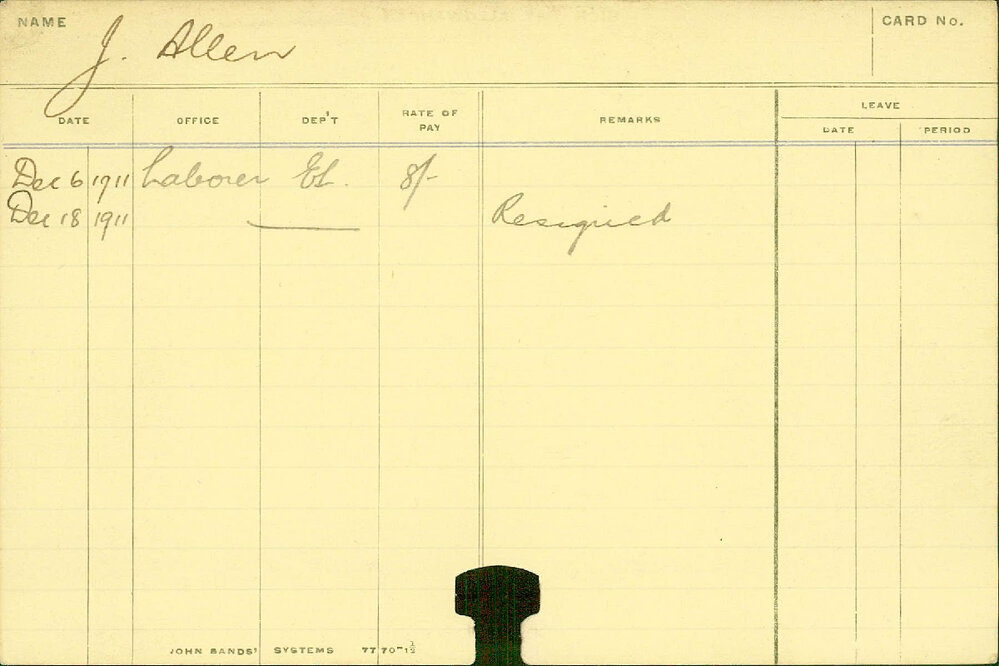 NAME
J. Allen
CARD No.
DATE OFFICE DEP'T RATE OF PAY REMARKS LEAVE
DATE PERIOD
Dec 6 1911 Laborer EL. 8/-
Dec 18 1911 Resigned
JOHN SANDS' SYSTEMS 7770-1½